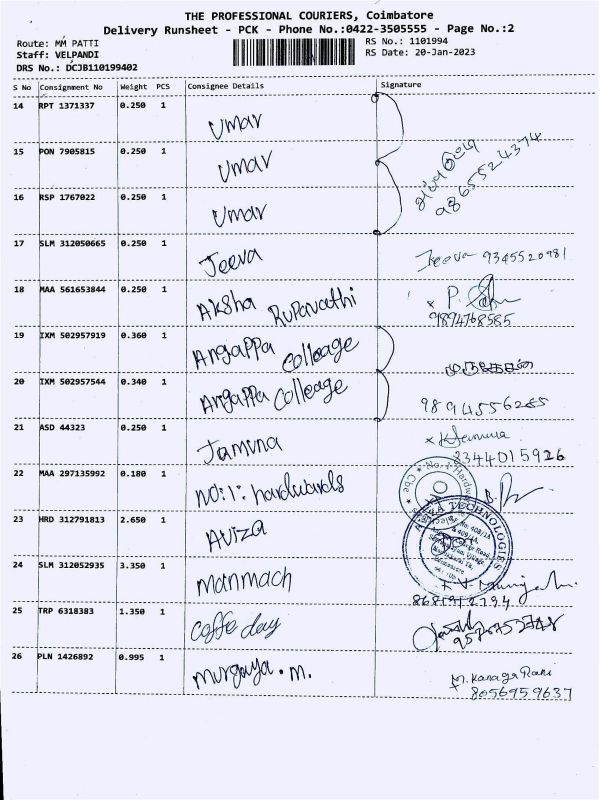 THE PROFESSIONAL COURIERS, Coimbatore
Delivery Runsheet - PCK - Phone No.:0422-3505555 - Page No.:2
Route: MM PATTI
RS No.: 1101994
Staff: VELPANDI
RS Date: 20-Jan-2023
DRS No.: DCJB110199402
S No Consignment No Weight PCS Consignee Details Signature
14 RPT 1371337 0.250 1 Umar
15 PON 7905815 0.250 1 Umar
9865524374
16 RSP 1767022 0.250 1 Umar
17 SLM 312050665 0.250 1 Jeeva Jeeva 9345520981
18 MAA 561653844 0.250 1 Aksha Rupavathi P.
9894768585
19 IXM 502957919 0.360 1 Angappa Colleage
20 IXM 502957544 0.340 1 Angappa Colleage 9894556265
21 ASD 44323 0.250 1 Jamuna
2344015926
22 MAA 297135992 0.180 1 NO:1: hardwards
23 HRD 312791813 2.650 1 Aviza
TECHNOLOGIES
24 SLM 312052935 3.350 1 Manmach
25 TRP 6318383 1.350 1 Coffe day
26 PLN 1426892 0.995 1 Murgaya.M. M. Kanaga Rani
8056959637